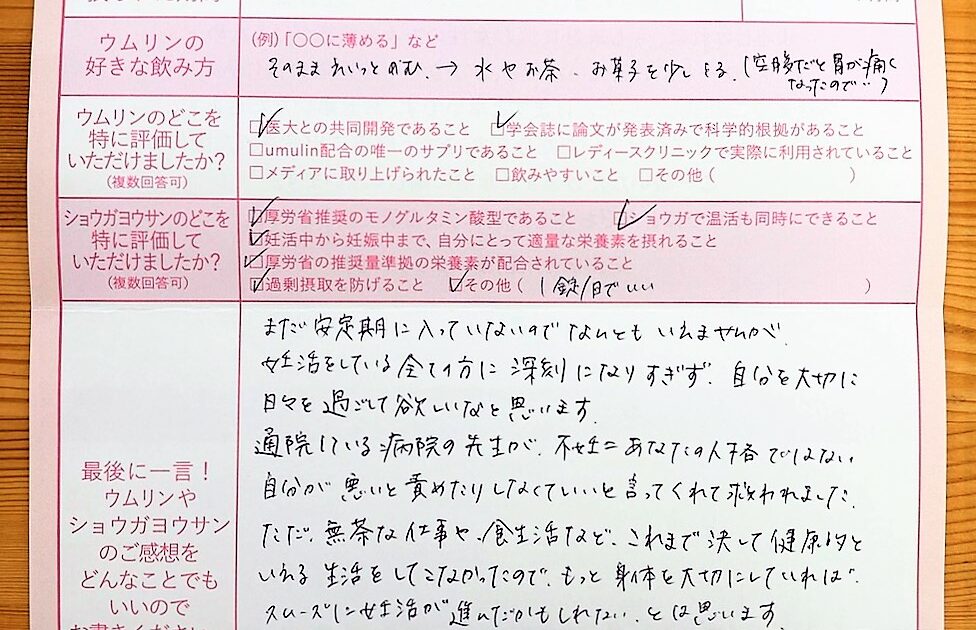 ウムリンの
好きな飲み方
(例)「〇〇に薄める」など
そのまま えいっとのむ、→ 水やお茶、お菓子を少しとる。(空腹だと胃が痛く
なったので…)
ウムリンのどこを
特に評価して
いただけましたか?
(複数回答可)
□医大との共同開発であること □学会誌に論文が発表済みで科学的根拠があること
□umulin配合の唯一のサプリであること □レディースクリニックで実際に利用されていること
□メディアに取り上げられたこと □飲みやすいこと □その他( )
ショウガヨウサンのどこを
特に評価して
いただけましたか?
(複数回答可)
□厚労省推奨のモノグルタミン酸型であること □ショウガで温活も同時にできること
□妊活中から妊娠中まで、自分にとって適量な栄養素を摂れること
□厚労省の推奨量準拠の栄養素が配合されていること
□過剰摂取を防げること □その他( 1錠/日でいい )
最後に一言!
ウムリンや
ショウガヨウサン
のご感想を
どんなことでも
いいので
まだ安定期に入っていないのでなんとも いえませんが、
妊活をしている全ての方に 深刻になりすぎず、自分を大切に
日々を過ごして欲しいなと思います。
通院している病院の先生が、不妊=あなたの人格ではない
自分が悪いと責めたりしなくていいと言ってくれて救われました。
ただ、無茶な仕事や、食生活など、これまで決して健康的と
いえる生活をしてこなかったので、もっと身体を大切にしていれば、
スムーズに妊活が進んだかもしれない、とは思います。